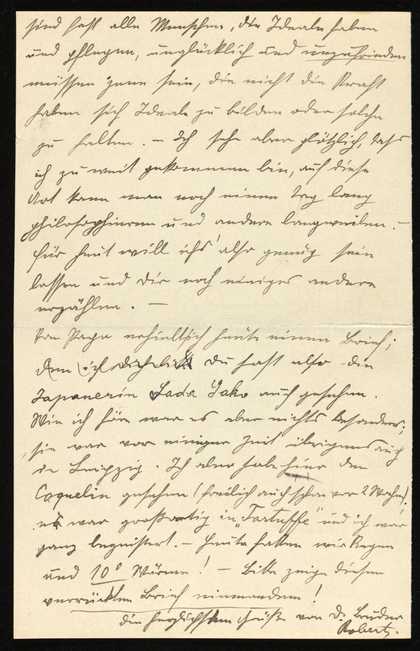 sind fast alle Menschen, die Ideale haben
und pflegen, unglücklich und unzufrieden
müssen jene sein, die nicht die Kraft
haben sich Ideale zu bilden oder solche
zu halten. – Ich sehe aber plötzlich, dass
ich zu weit gekommen bin, auf diese
Art kann man noch einen Tag lang
philosophieren und andere langweilen. –
Für heut will ich's also genug sein
lassen und Dir noch einiges andere
erzählen. –
Von Papa erhielt ich heute einen Brief;
Du hast also die
Japanerin Sada Yako auch gesehen.
Wie ich höre war es aber nichts besonders;
sie war vor einiger Zeit übrigens auch
in Leipzig. Ich aber habe hier den
Coquelin gesehen (freilich auch schon vor 2 Wochen),
er war großartig in "Tartuffe" und ich war
ganz begeistert. – Heute hatten wir Regen
und 10° Wärme! – Bitte zeige diesen
verrückten Brief niemandem!
Die herzlichsten Grüße von D. Bruder
Robert.